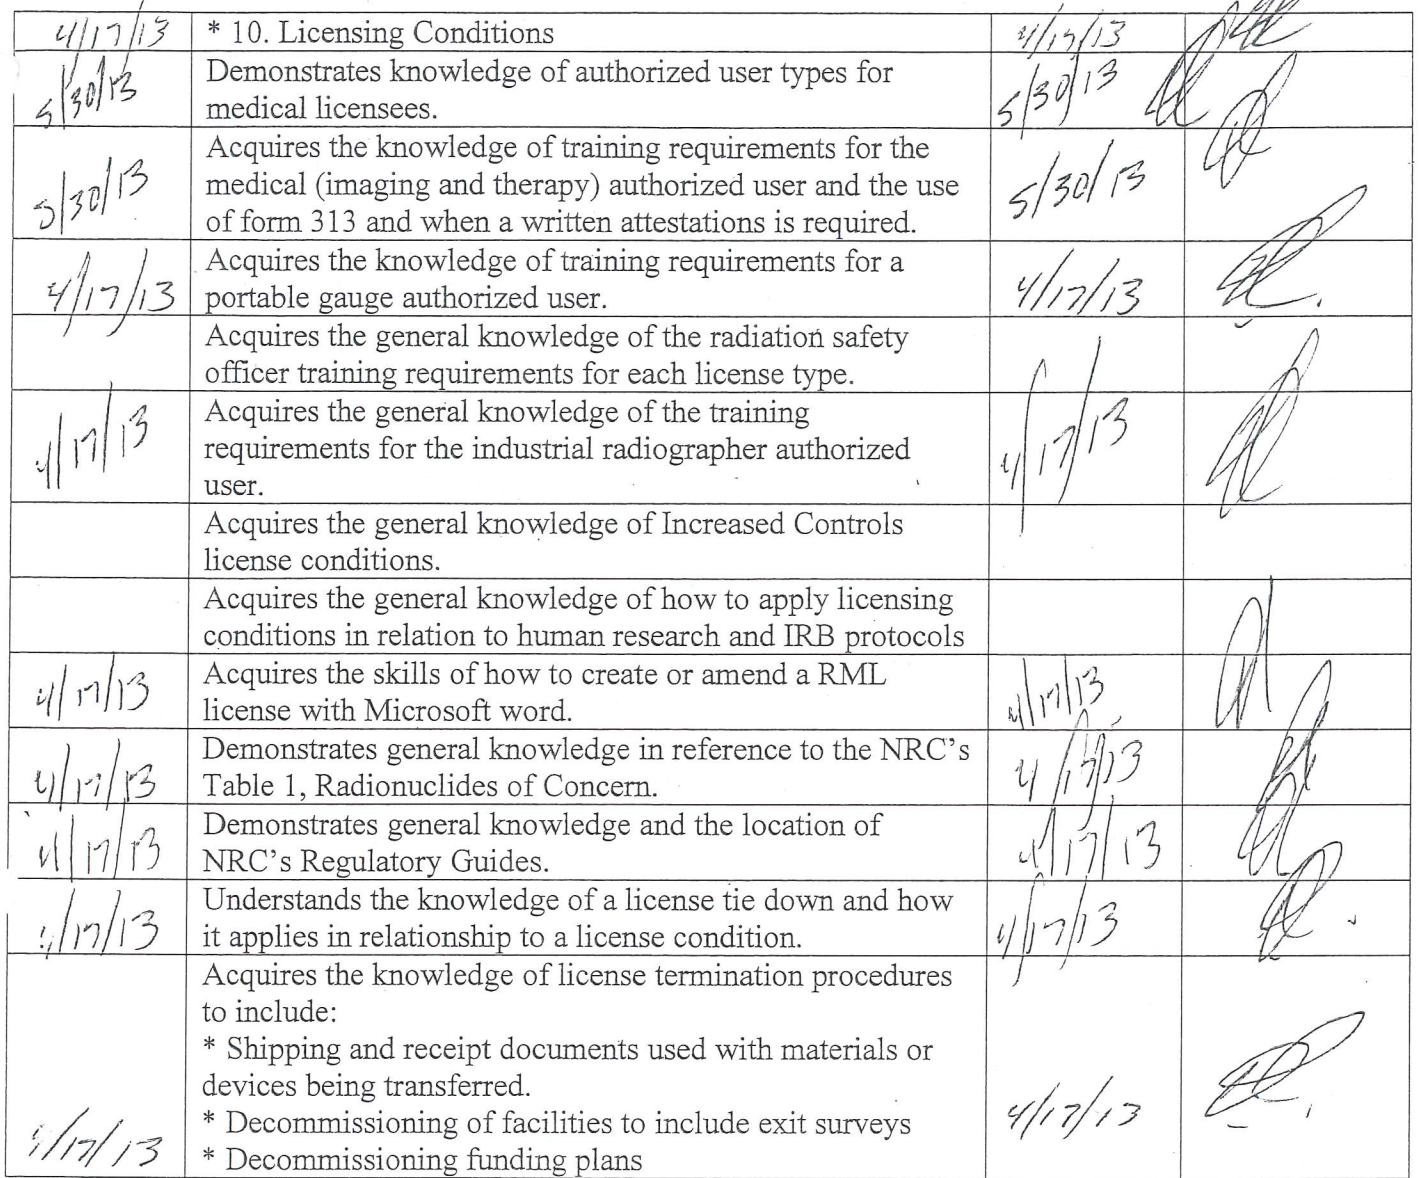 4/17/13 * 10. Licensing Conditions 4/17/13
5/30/13 Demonstrates knowledge of authorized user types for 5/30/13
medical licensees.
Acquires the knowledge of training requirements for the
5/30/13 medical (imaging and therapy) authorized user and the use 5/30/13
of form 313 and when a written attestations is required.
Acquires the knowledge of training requirements for a
4/17/13 portable gauge authorized user. 4/17/13
Acquires the general knowledge of the radiation safety
officer training requirements for each license type.
Acquires the general knowledge of the training
4/17/13 requirements for the industrial radiographer authorized 4/17/13
user.
Acquires the general knowledge of Increased Controls
license conditions.
Acquires the general knowledge of how to apply licensing
conditions in relation to human research and IRB protocols
4/17/13 Acquires the skills of how to create or amend a RML 4/17/13
license with Microsoft word.
4/17/13 Demonstrates general knowledge in reference to the NRC's 4/17/13
Table 1, Radionuclides of Concern.
4/17/13 Demonstrates general knowledge and the location of 4/17/13
NRC's Regulatory Guides.
Understands the knowledge of a license tie down and how
4/17/13 it applies in relationship to a license condition. 4/17/13
Acquires the knowledge of license termination procedures
to include:
* Shipping and receipt documents used with materials or
devices being transferred.
* Decommissioning of facilities to include exit surveys
4/17/13 * Decommissioning funding plans 4/17/13